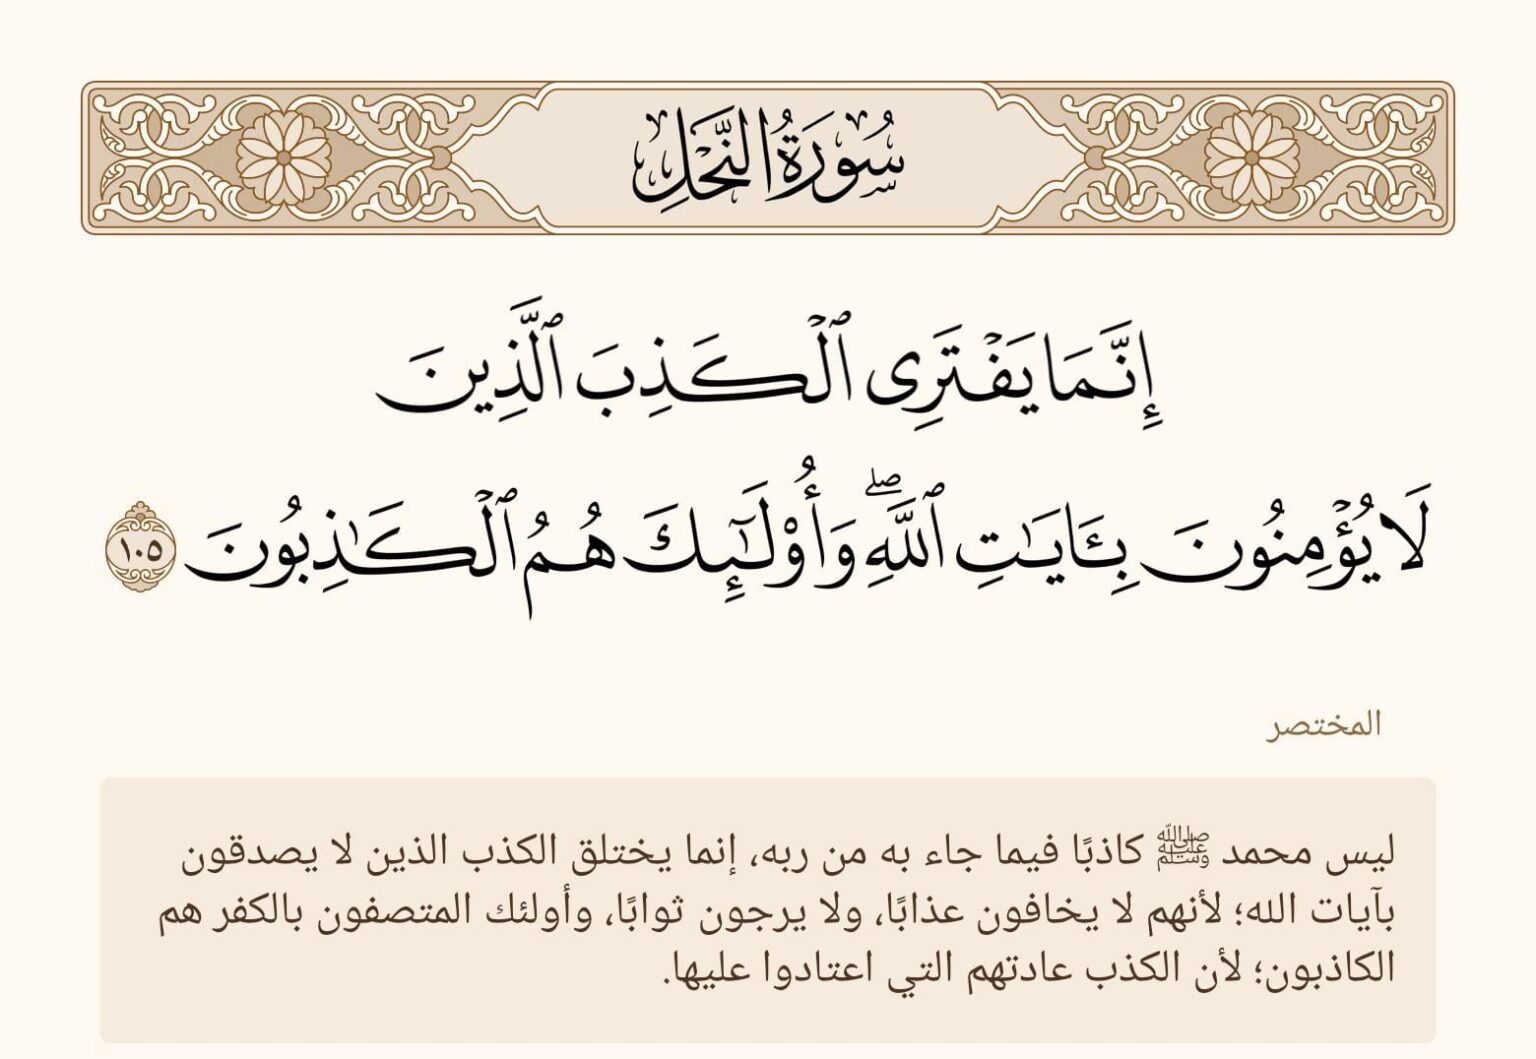 سُورَةُ النَّحْلِ
إِنَّمَا يَفۡتَرِى ٱلۡكَذِبَ ٱلَّذِينَ
لَا يُؤۡمِنُونَ بِـَٔايَـٰتِ ٱللَّهِۖ وَأُوْلَـٰٓئِكَ هُمُ ٱلۡكَـٰذِبُونَ ١٠٥
المختصر
ليس محمد ﷺ كاذبًا فيما جاء به من ربه، إنما يختلق الكذب الذين لا يصدقون
بآيات الله؛ لأنهم لا يخافون عذابًا، ولا يرجون ثوابًا، وأولئك المتصفون بالكفر هم
الكاذبون؛ لأن الكذب عادتهم التي اعتادوا عليها.